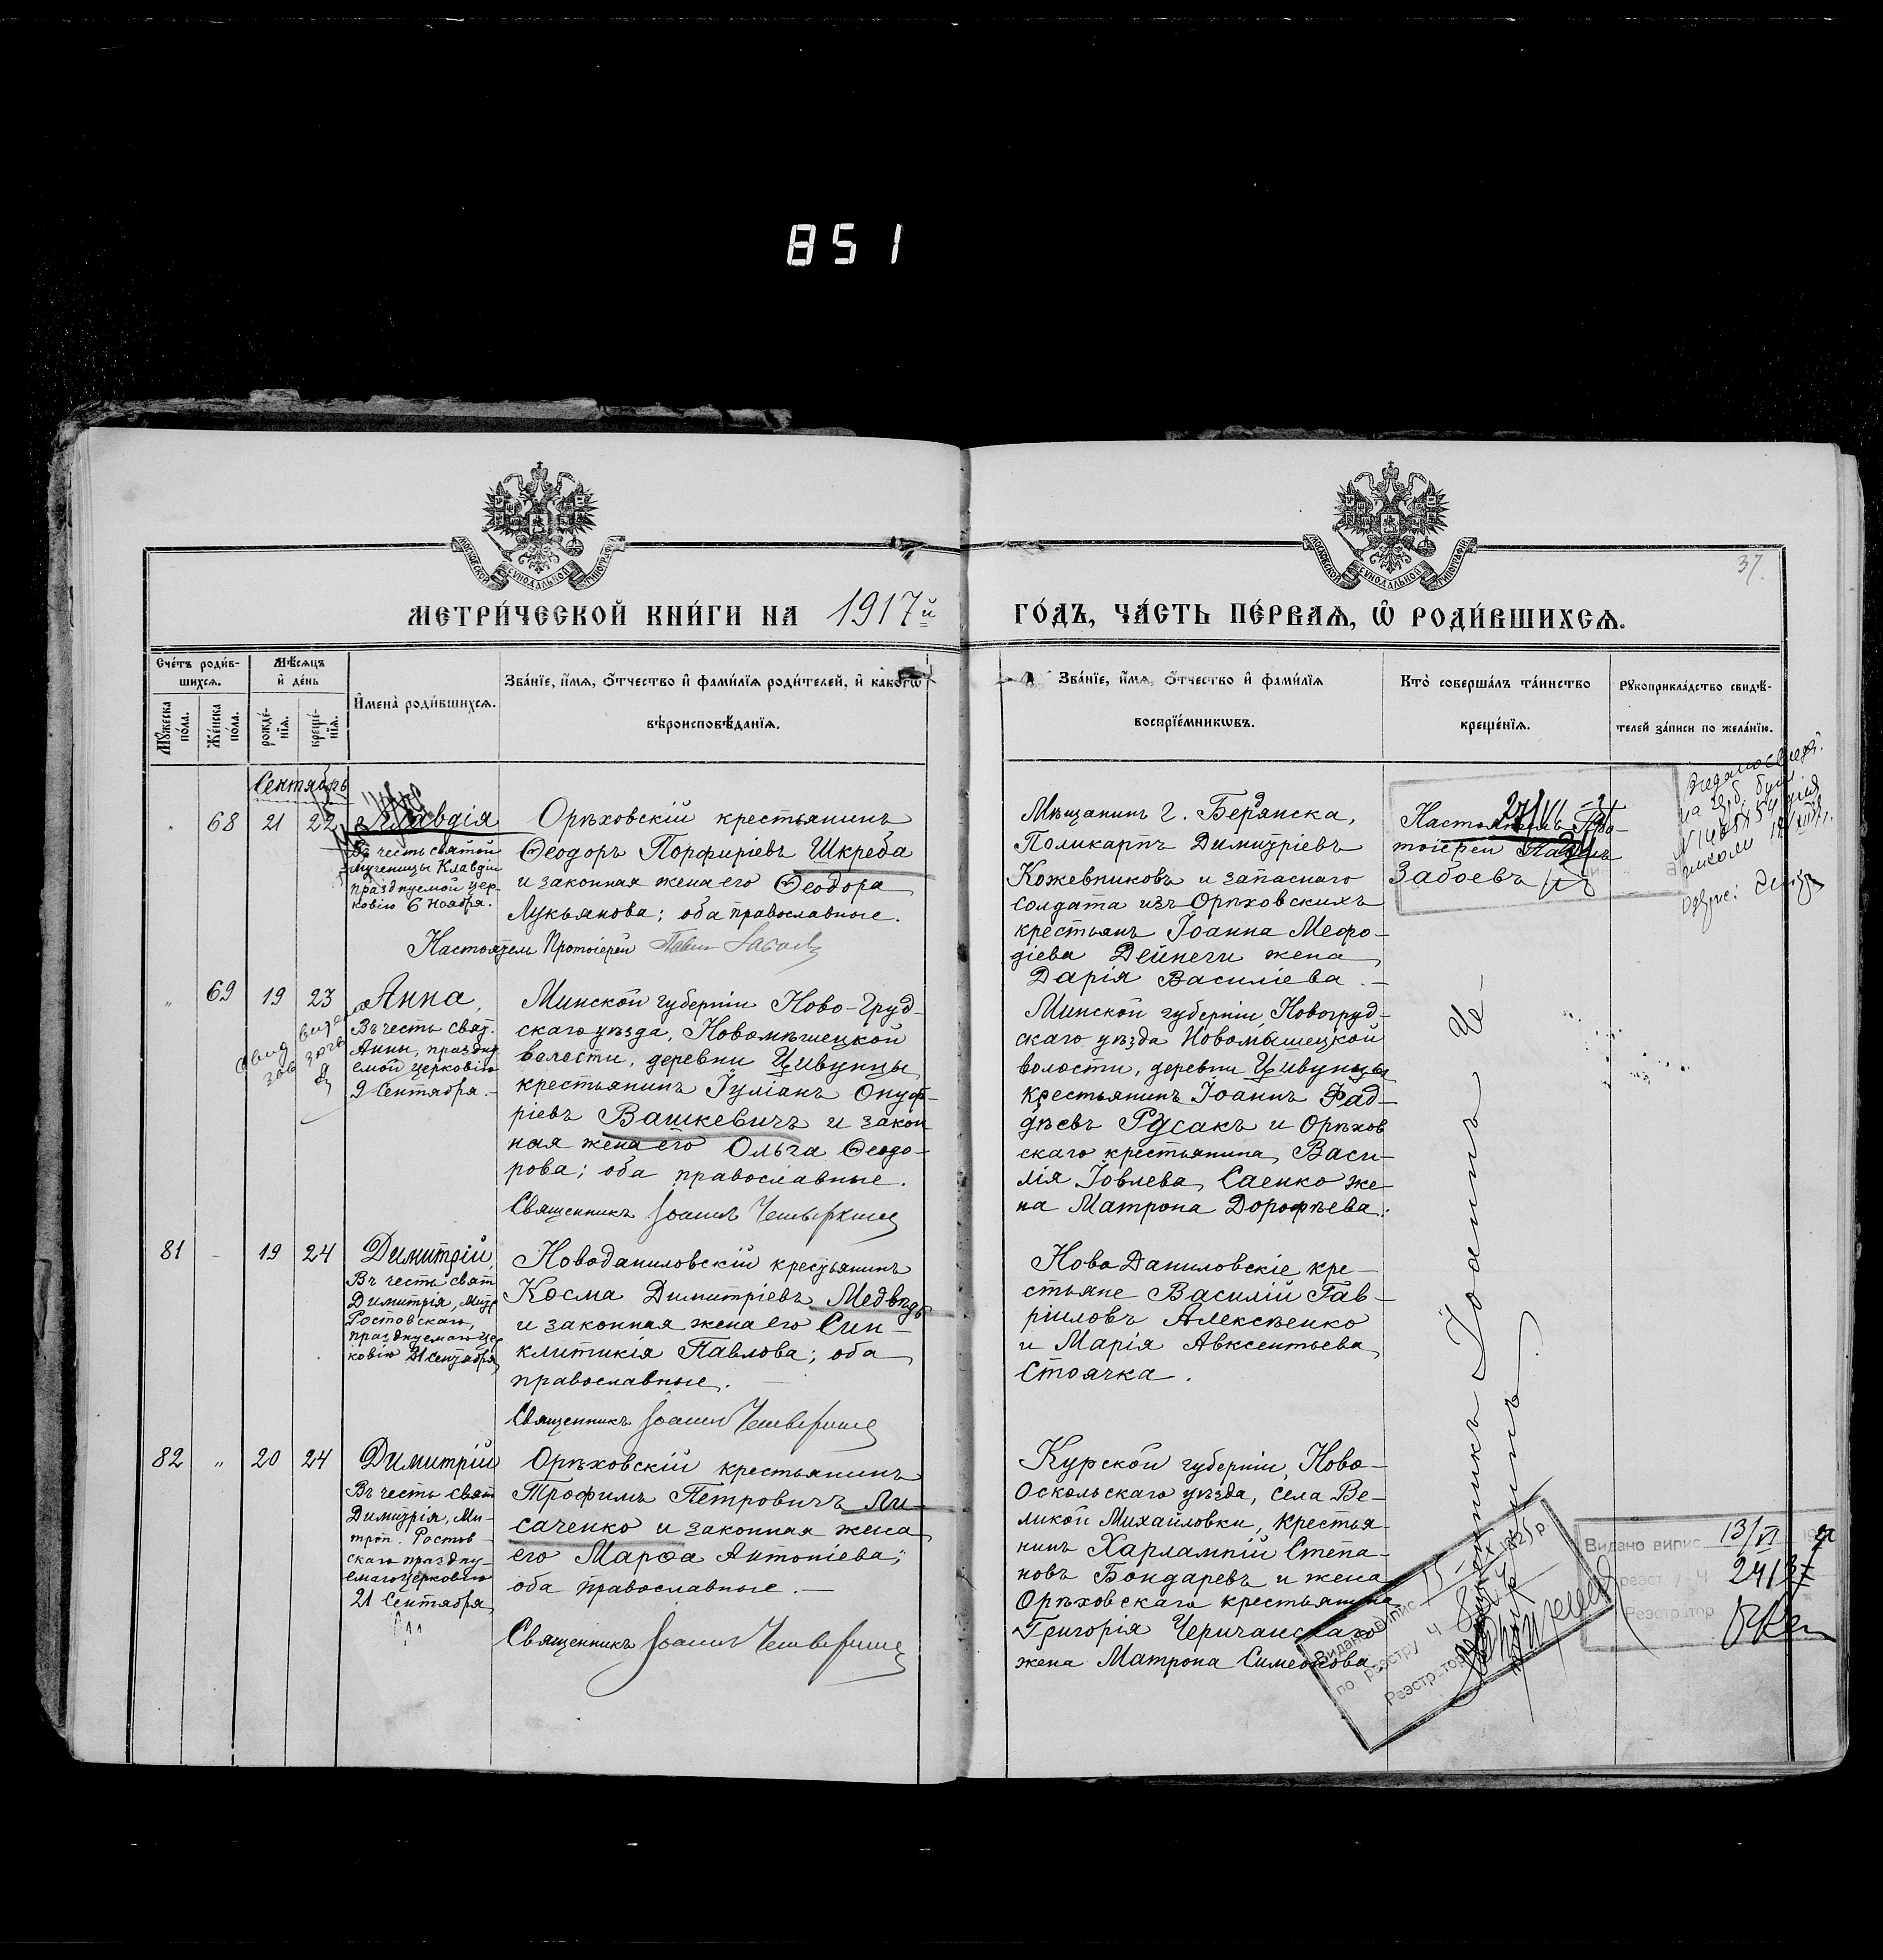 851
МОСКОВСКОЙ СУНОДАЛЬНОЙ ТИПОГРАФІИ
МОСКОВСКОЙ СУНОДАЛЬНОЙ ТИПОГРАФІИ
37.
МЕТРИ́ЧЕСКОЙ КНИ́ГИ НА 1917й
ГО́ДЪ, ЧА́СТЬ ПЕ́РВАѦ, Ѡ҆ РОДИ́ВШИХСѦ.
Сче́тъ роди́в-
шихсѧ.
Мꙋ́жеска по́ла.
Же́нска по́ла.
Мѣ́сѧцъ
и҆ де́нь
рожде́-
нїѧ.
креще́-
нїѧ.
И҆мена̀ роди́вшихсѧ.
Зва́нїе, и҆́мѧ, ѻ҆́тчество и҆ фами́лїѧ роди́телей, и҆ како́гѡ
вѣроисповѣ́данїѧ.
Зва́нїе, и҆́мѧ, ѻ҆́тчество и҆ фами́лїѧ
воспрїе́мникѡвъ.
Кто̀ соверша́лъ та́инство
креще́нїѧ.
Рꙋкоприкла́дство свидѣ́-
телей за́писи по жела́нїю.
Сентябрь
68 21 22 Клавдія
Въ честь святой
мученицы Клавдіи
празднуемой цер-
ковію 6 Ноября.
Орѣховскій крестьянинъ
Ѳеодоръ Порфиріевъ Шкреба
и законная жена его Ѳеодора
Лукьянова; оба православные.
Настоятель Протоіерей Павелъ Забоевъ
Мѣщанинъ г. Бердянска,
Поликарпъ Димитріевъ
Кожевниковъ и запаснаго
солдата изъ Орѣховскихъ
крестьянъ Іоанна Меѳо-
діева Дейнеги жена
Дарія Василіева.
Настоятель Про-
тоіерей Павелъ
Забоевъ
27/VI
69 19 23 Анна,
Въ честь свят.
Анны, праздну
емой церковію
9 Сентября.
Минской губерніи Ново-Груд-
скаго уѣзда, Новомѣшецкой
волости, деревни Цивунцы
крестьянинъ Іуліанъ Онуф-
ріевъ Вашкевичъ и закон
ная жена его Ольга Ѳеодо-
рова; оба православные.
Священникъ Іоаннъ
Минской губерніи, Новогруд-
скаго уѣзда Новомышецкой
волости, деревни Цивунцы
крестьянинъ Іоаннъ Фад-
дѣевъ Русакъ и Орѣхов
скаго крестьянина, Васи-
лія Іовлева, Саенко же-
на Матрона Дороѳѣева.
81 - 19 24 Димитрій,
Въ честь свят
Димитрія, Митр
Ростовскаго,
празднуемаго цер
ковію 21 Сентября
Новоданиловскій крестьянинъ
Косма Димитріевъ Медвѣдь
и законная жена его Син-
клитикія Павлова; оба
православные.
Священникъ Іоаннъ
Ново Даниловскіе кре-
стьяне Василій Гав-
ріиловъ Алексѣенко
и Марія Авксентьева
Стоячка.
82 „ 20 24 Димитрій
Въ честь свят
Димитрія, Ми-
троп. Ростов-
скаго праздну-
емаго церковію
21 Сентября
Орѣховскій крестьянинъ
Трофимъ Петровичъ Ли-
саченко и законная жена
его Марѳа Антоніева;
оба православные.
Священникъ Іоаннъ
Курской губерніи, Ново-
Оскольскаго уѣзда, села Ве-
ликой Михайловки, крестья-
нинъ Харлампій Степа-
новъ Бондаревъ и жена
Орѣховскаго крестьянина
Григорія Черичанскаго
жена Матрона Симеонова.
Священникъ Іоаннъ Че-
Видано випис
по реэстру Ч
Реэстратор
Видано випис 13/VI
реэстру Ч 2413
Реэстратор